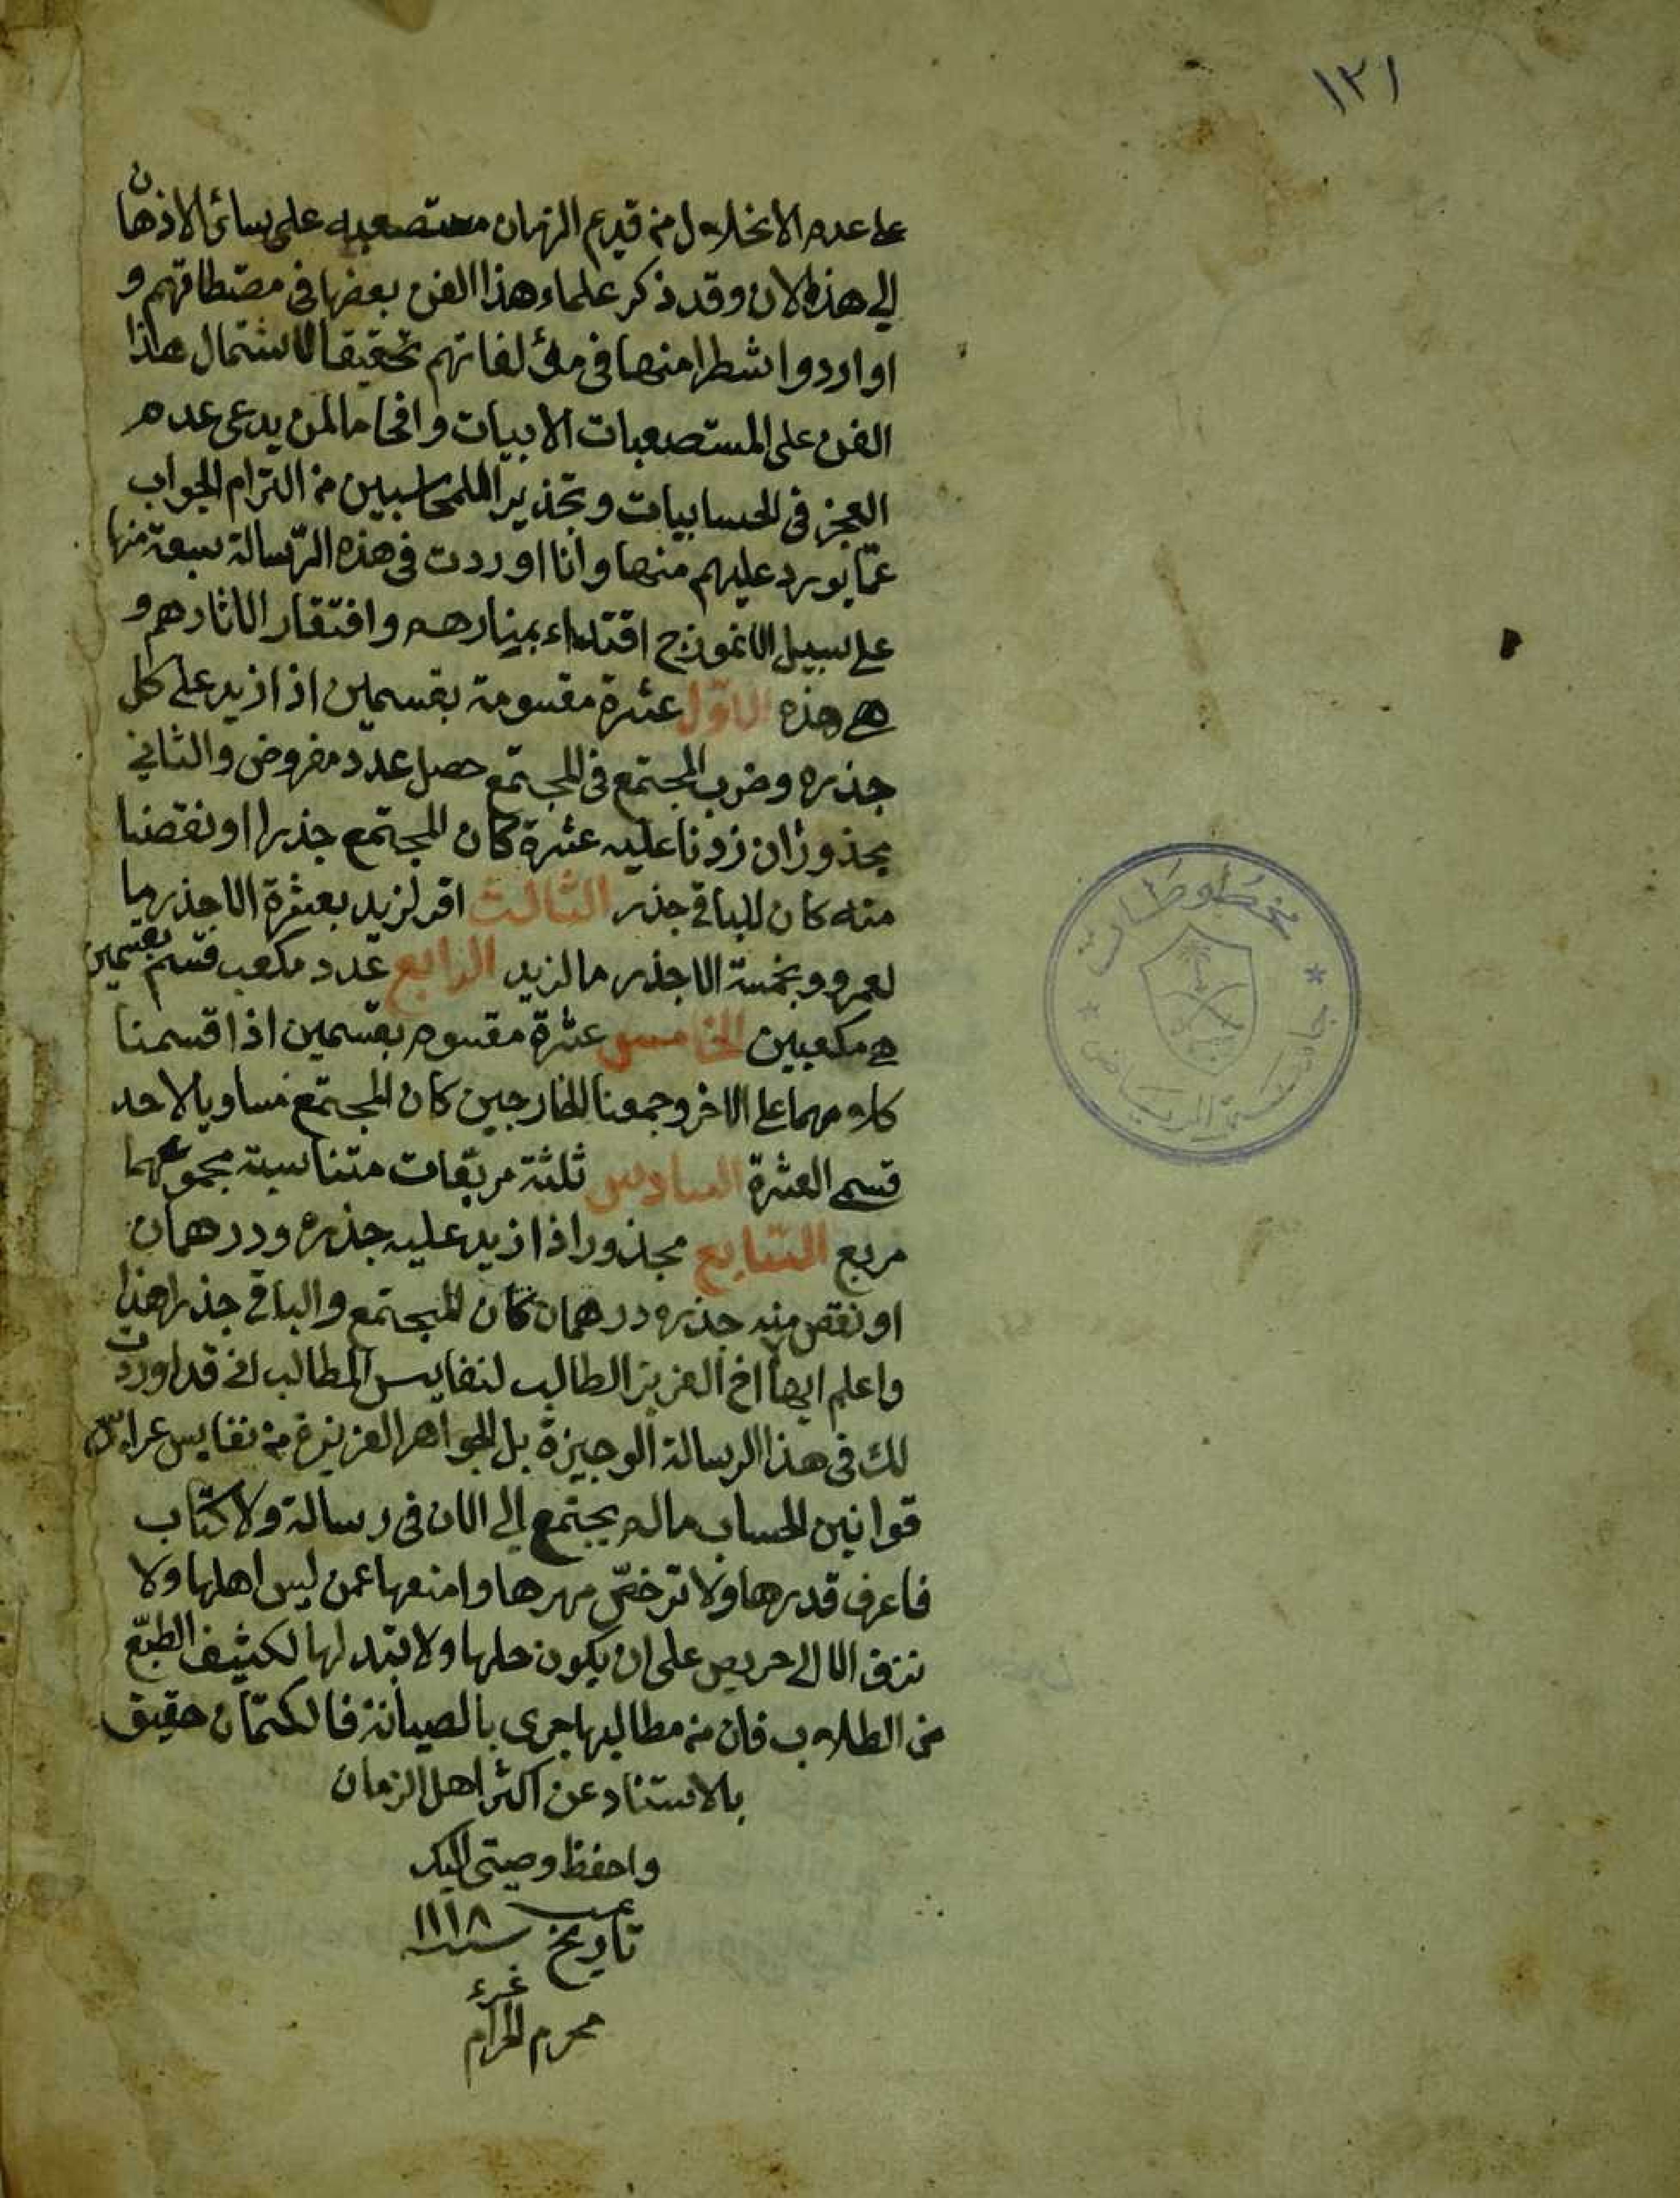 ١٢١
على عدم الانخلال من قديم الزمان مستصعبه على سائر الاذهان
الى هذه الان وقد ذكر علماء هذا الفن بعضها فى مصتطافتهم و
او اردوا شطرا منها فى مؤلفاتهم تحقيقا لاشتمال هذا
الفن على المستصعبات الابيات وافحاما لمن يدعى عدم
العجز فى الحسابيات وتحذيرا للمحاسبين من التزام الجواب
عما يورد عليهم منها وانا اوردت فى هذه الرسالة سبعة منها
على سبيل الانموذج اقتداء بمنارهم وافتقار الاثارهم و
هى هذه الاول عشرة مقسومة بقسمين اذا زيد على كل
جذره وضرب المجتمع فى المجتمع حصل عدد مفروض والثانى
مجذور ان زدنا عليه عشرة كان المجتمع جذرا او نقضنا
منه كان للباقى جذر الثالث اقر لزيد بعشرة الا جذر ما
لعمرو وبخمسة الا جذر ما لزيد الرابع عدد مكعب قسم بقسمين
مكعبين الخامس عشرة مقسوم بقسمين اذا قسمنا
كلا منهما على الاخر وجمعنا الخارجين كان المجتمع مساويا لاحد
قسمى العشرة السادس ثلثة مربعات متناسبة مجموعهما
مربع السابع مجذور اذا زيد عليه جذره ودرهمان
او نقص منه جذره درهمان كان المجتمع والباقى جذرا هذا
واعلم ايها الاخ العزيز الطالب لنفايس المطالب انى قد اوردت
لك فى هذا الرسالة الوجيزة بل الجواهر العزيزة من نفايس عرائس
قوانين الحساب ما لم يجتمع الى الان فى رسالة ولا كتاب
فاعرف قدرها ولا ترخص مهرها وامنعها عمن ليس اهلها ولا
تزف الا الى حريص على ان يكون حلها ولا تبدلها لكثيف الطبع
من الطلاب فان من مطالبها حرى بالصيانة فالكتمان حقيق
بالاستناد عن اكثر اهل الزمان
واحفظ وصيتى اليك
تمت
تاريخ سنه ١١١٨
غرء
محرم الحرام
مخطوطات
جامعة الرياض